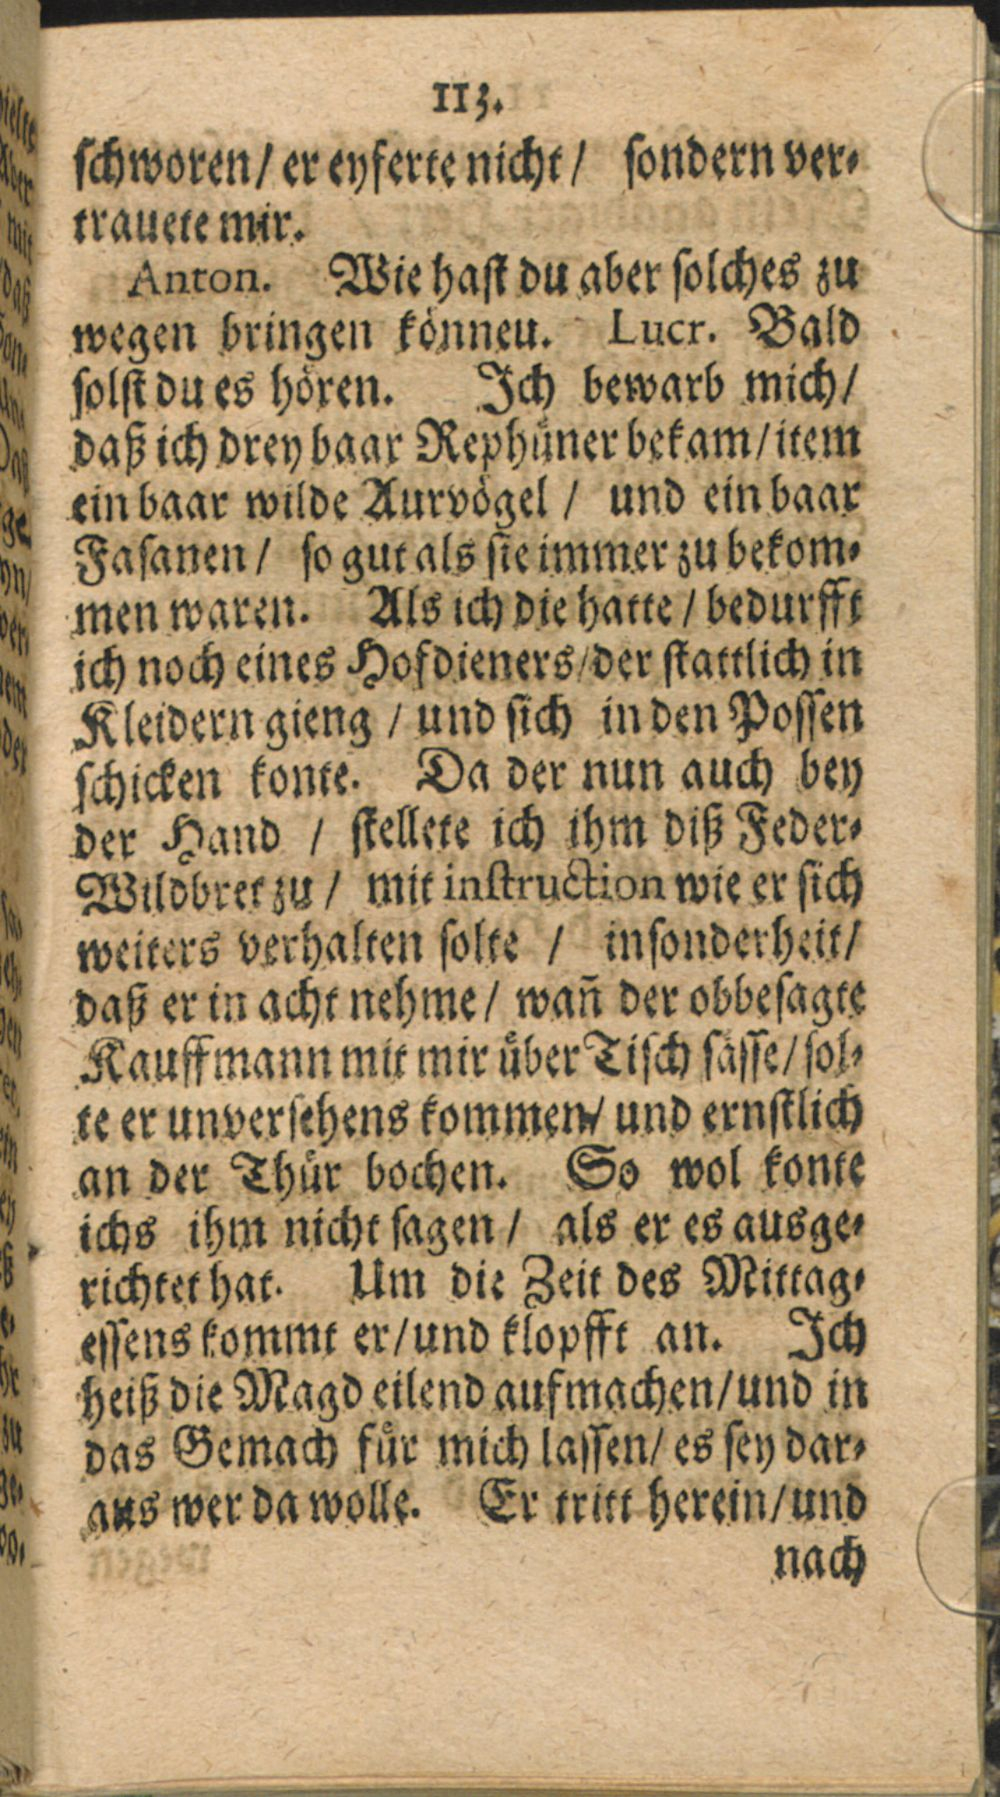 113.
schworen / er eyferte nicht / sondern ver-
trauete mir.
Anton. Wie hast du aber solches zu
wegen bringen könneu. Lucr. Bald
solst du es hören. Ich bewarb mich /
daß ich drey baar Rephüner bekam / item
ein baar wilde Aurvögel / und ein baar
Fasanen / so gut als sie immer zu bekom-
men waren. Als ich die hatte / bedurfft
ich noch eines Hofdieners / der stattlich in
Kleidern gieng / und sich in den Possen
schicken konte. Da der nun auch bey
der Hand / stellete ich ihm diß Feder-
Wildbret zu / mit instruction wie er sich
weiters verhalten solte / insonderheit /
daß er in acht nehme / wañ der obbesagte
Kauffmann mit mir über Tisch sässe / sol-
te er unversehens kommen / und ernstlich
an der Thür bochen. So wol konte
ichs ihm nicht sagen / als er es ausge-
richtet hat. Um die Zeit des Mittag-
essens kommt er / und klopfft an. Ich
heiß die Magd eilend aufmachen / und in
das Gemach für mich lassen / es sey dar-
aus wer da wolle. Er tritt herein / und
nach